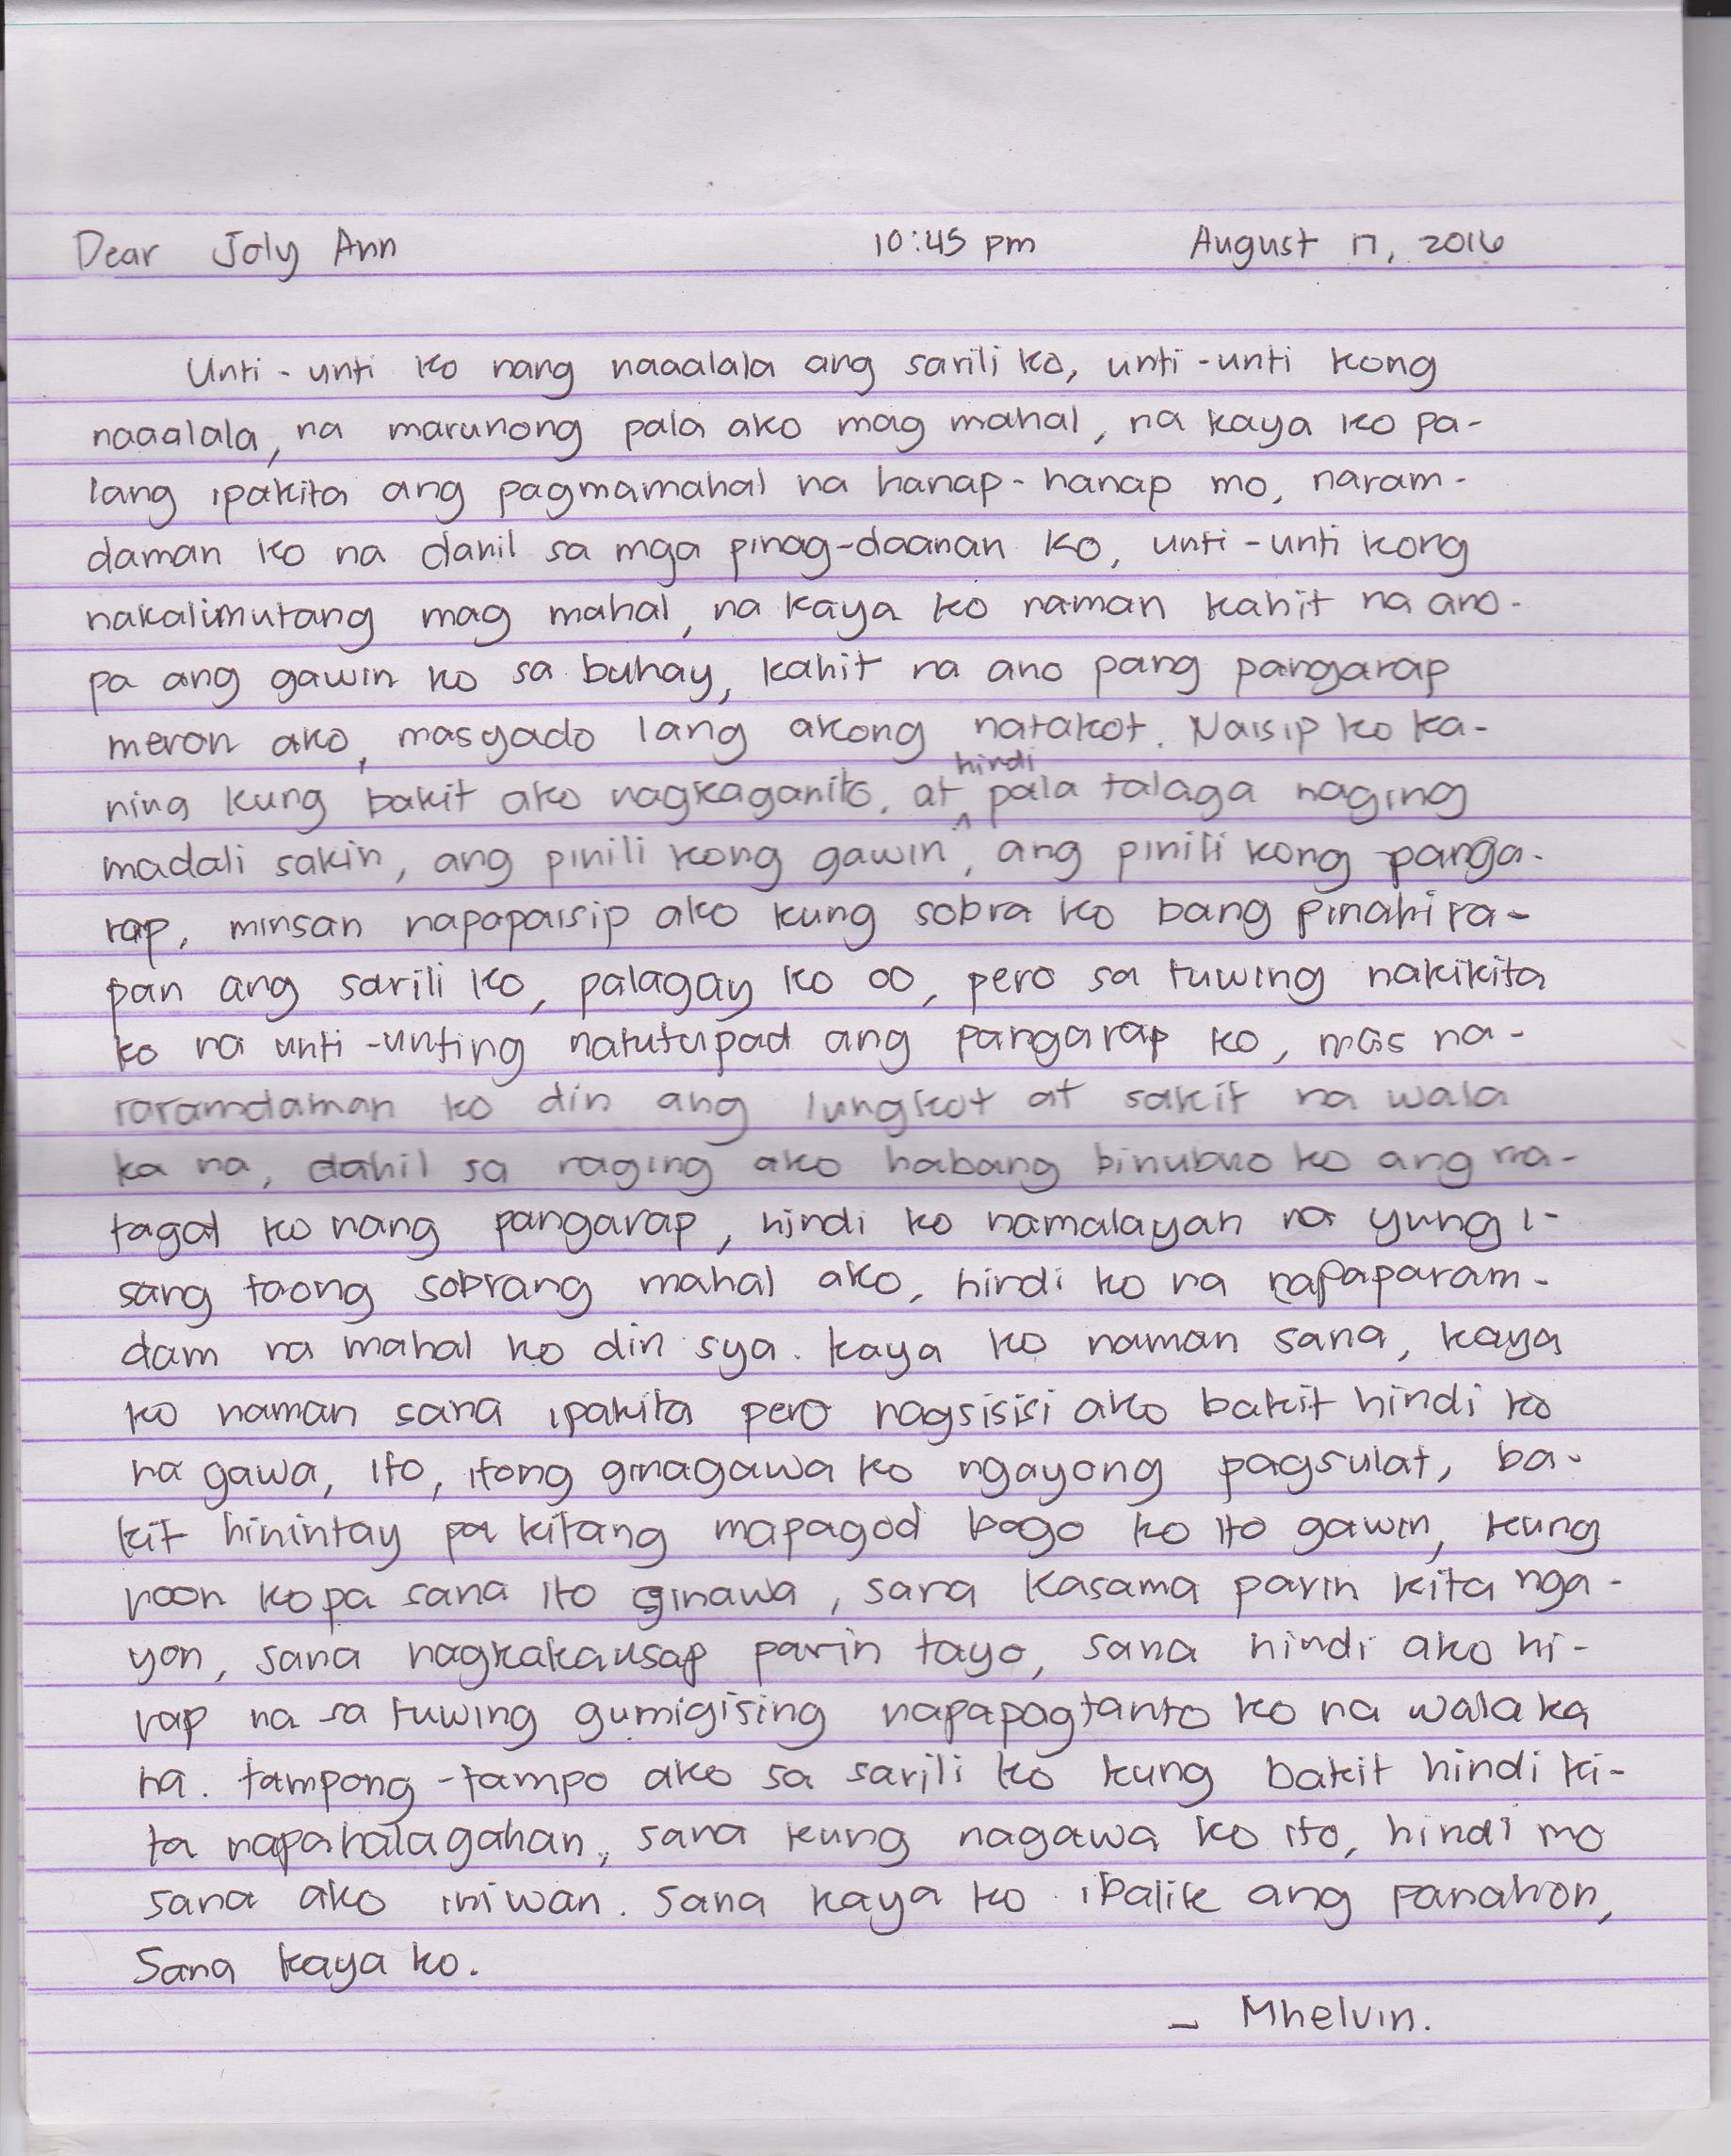 Dear Joly Ann 10:45 pm August 17, 2016
Unti-unti ko nang naaalala ang sarili ko, unti-unti kong
naaalala, na marunong pala ako mag mahal, na kaya ko pa-
lang ipakita ang pagmamahal na hanap-hanap mo, naram-
daman ko na dahil sa mga pinag-daanan ko, unti-unti kong
nakalimutang mag mahal, na kaya ko naman kahit na ano-
pa ang gawin ko sa buhay, kahit na ano pang pangarap
meron ako, masyado lang akong natakot. Naisip ko ka-
nina kung bakit ako nagkaganito, at hindi pala talaga naging
madali sakin, ang pinili kong gawin, ang pinili kong panga-
rap, minsan napapaisip ako kung sobra ko bang pinahira-
pan ang sarili ko, palagay ko oo, pero sa tuwing nakikita
ko na unti-unting natutupad ang pangarap ko, mas na-
raramdaman ko din ang lungkot at sakit na wala
ka na, dahil sa naging ako habang binubuo ko ang ma-
tagal ko nang pangarap, hindi ko namalayan na yung i-
sang taong sobrang mahal ako, hindi ko na napaparam-
dam na mahal ko din sya. kaya ko naman sana, kaya
ko naman sana ipakita pero nagsisisi ako bakit hindi ko
na gawa, ito, itong ginagawa ko ngayong pagsulat, ba-
kit hinintay pa kitang mapagod bago ko ito gawin, kung
noon ko pa sana ito ginawa, sana kasama parin kita nga-
yon, sana nagkakausap parin tayo, sana hindi ako hi-
rap na sa tuwing gumigising napapagtanto ko na wala ka
na. tampong-tampo ako sa sarili ko kung bakit hindi ki-
ta napahalagahan, sana kung nagawa ko ito, hindi mo
sana ako iniwan. Sana kaya ko ibalik ang panahon,
Sana kaya ko.
- Mhelvin.